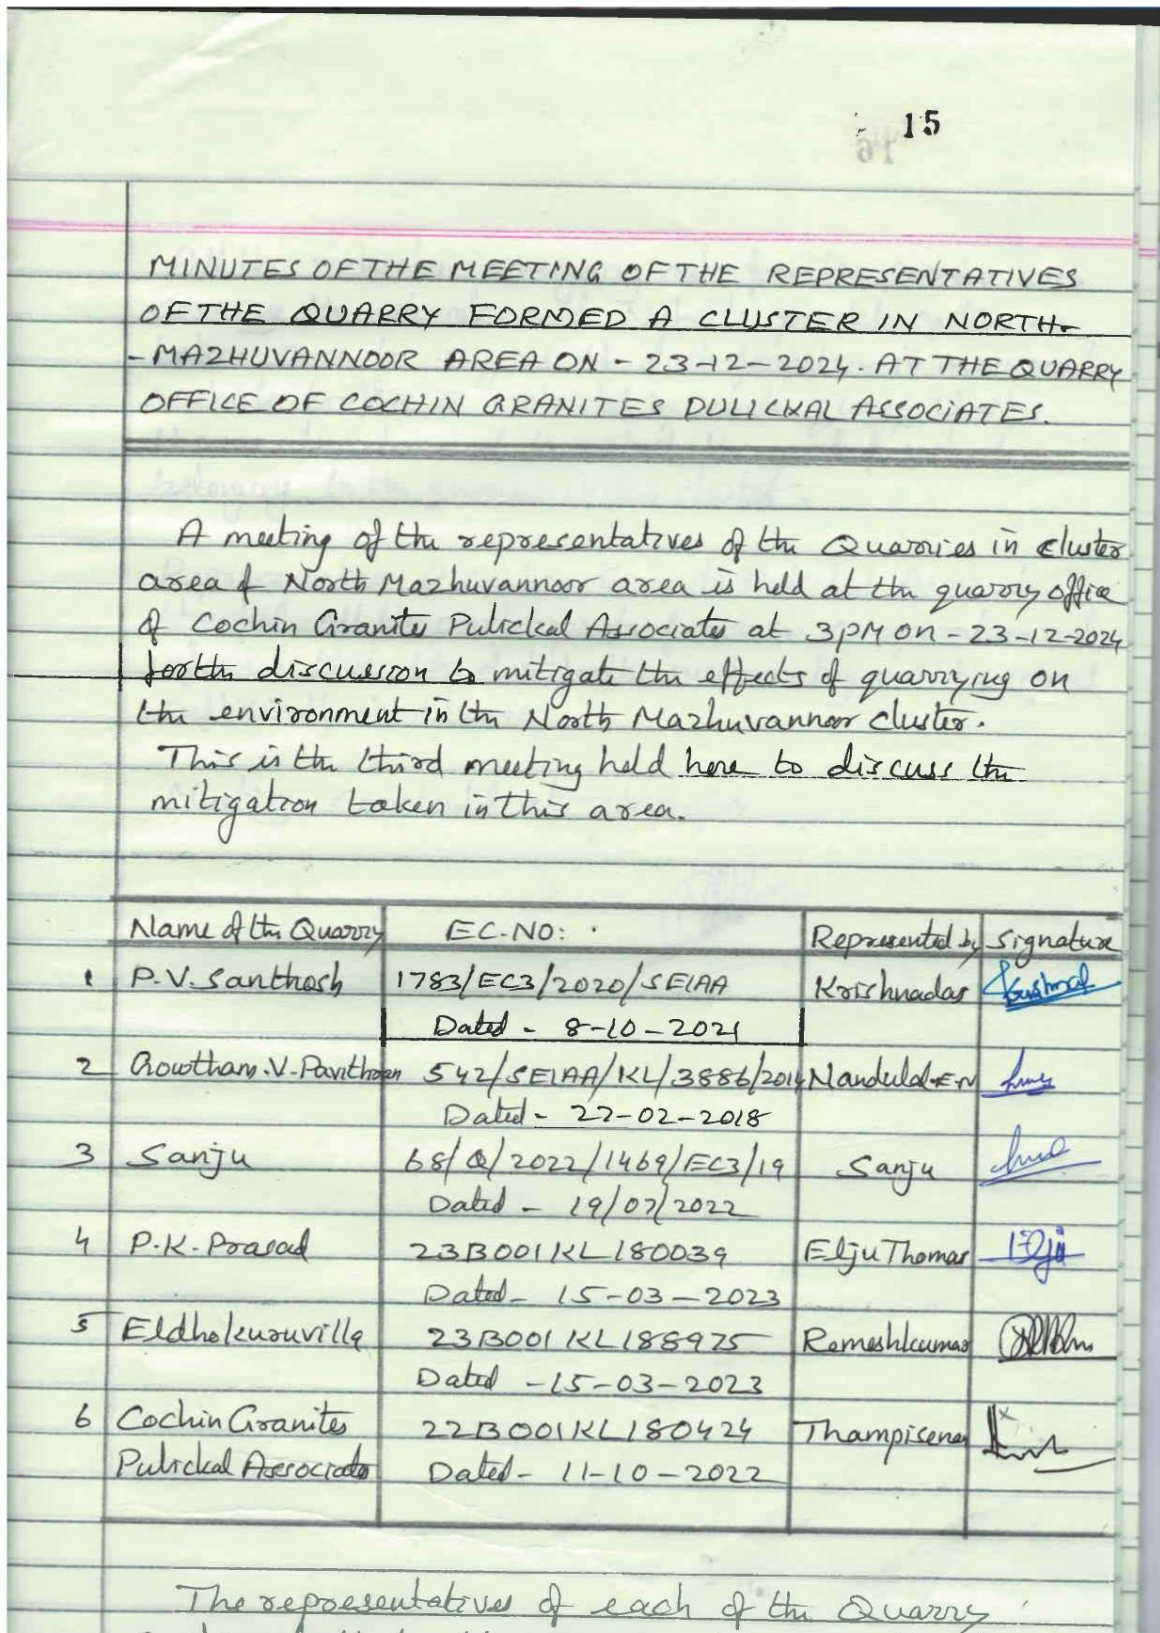 15
MINUTES OF THE MEETING OF THE REPRESENTATIVES
OF THE QUARRY FORMED A CLUSTER IN NORTH-
-MAZHUVANNOOR AREA ON - 23-12-2024. AT THE QUARRY
OFFICE OF COCHIN GRANITES PULICKAL ASSOCIATES.
A meeting of the representatives of the Quarries in cluster
area of North Mazhuvannoor area is held at the quarry office
of Cochin Granites Pulickal Associates at 3PM on - 23-12-2024
for the discussion to mitigate the effects of quarrying on
the environment in the North Mazhuvannoor cluster.
This is the third meeting held here to discuss the
mitigation taken in this area.
Name of the Quarry EC-NO: Represented by Signature
1 P.V. Santhosh 1783/EC3/2020/SEIAA Krishnadas
Dated - 8-10-2021
2 Gowtham.V. 542/SEIAA/KL/3886/2014 Nandulal.E.N
Dated - 22-02-2018
3 Sanju 68/Q/2022/1469/EC3/19 Sanju
Dated - 19/07/2022
4 P.K. Prasad 23B001KL180039 Elju Thomas
Dated - 15-03-2023
5 Eldhokuruvilla 23B001KL188975 Rameshkumar
Dated - 15-03-2023
6 Cochin Granites 22B001KL180424
Pulickal Associates Dated - 11-10-2022
The representatives of each of the Quarry